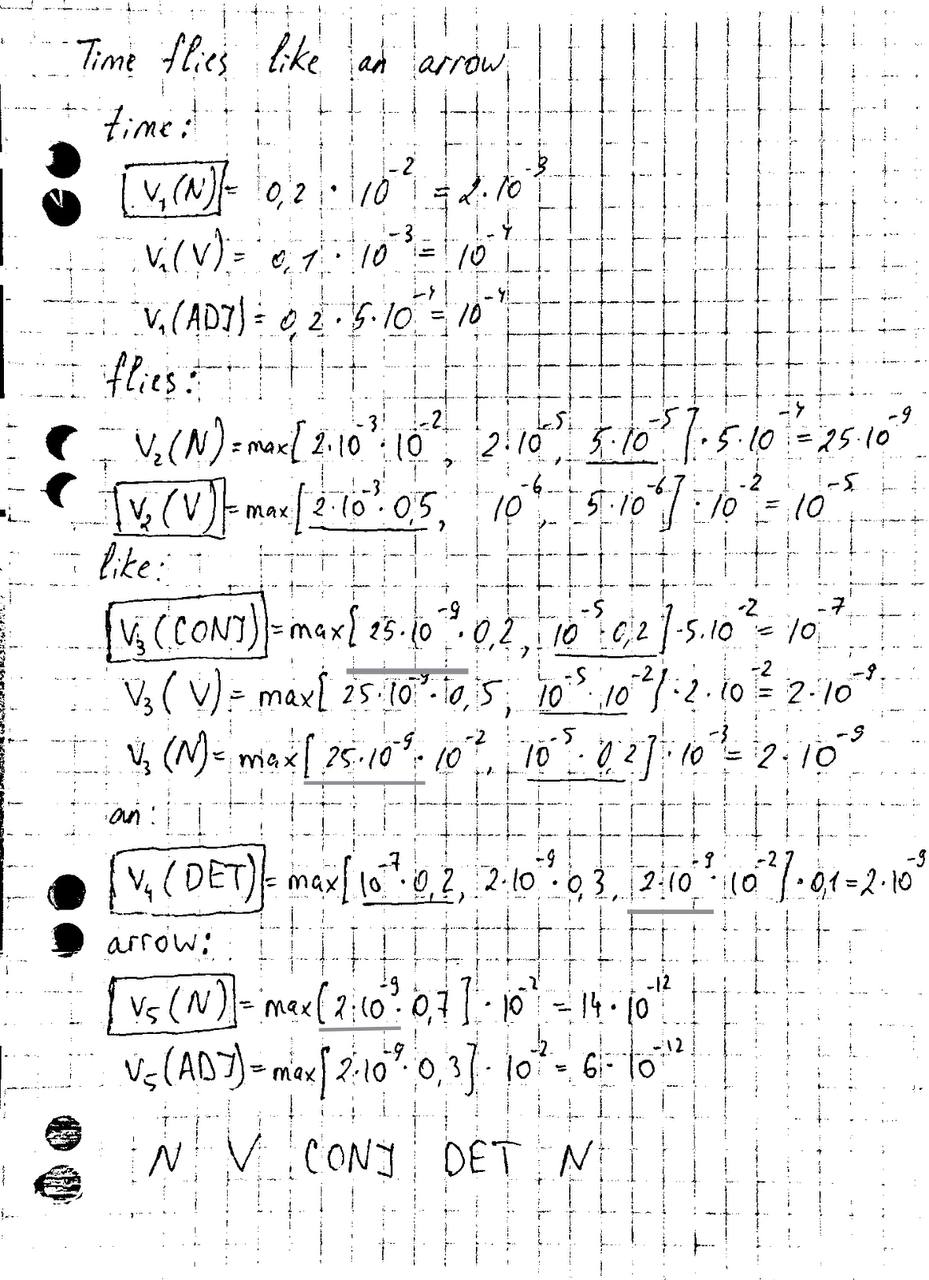 Time flies like an arrow
time:
V₁(N) = 0,2 · 10⁻² = 2·10⁻³
V₁(V) = 0,1 · 10⁻³ = 10⁻⁴
V₁(ADJ) = 0,2 · 5·10⁻⁴ = 10⁻⁴
flies:
V₂(N) = max[2·10⁻³·10⁻², 2·10⁻⁵, 5·10⁻⁵]·5·10⁻⁴ = 25·10⁻⁹
V₂(V) = max[2·10⁻³·0,5, 10⁻⁶, 5·10⁻⁶]·10⁻² = 10⁻⁵
like:
V₃(CONJ) = max[25·10⁻⁹·0,2, 10⁻⁵·0,2]·5·10⁻² = 10⁻⁷
V₃(V) = max[25·10⁻⁹·0,5, 10⁻⁵·10⁻²]·2·10⁻² = 2·10⁻⁹
V₃(N) = max[25·10⁻⁹·10⁻², 10⁻⁵·0,2]·10⁻³ = 2·10⁻⁹
an:
V₄(DET) = max[10⁻⁷·0,2, 2·10⁻⁹·0,3, 2·10⁻⁹·10⁻²]·0,1 = 2·10⁻⁹
arrow:
V₅(N) = max[2·10⁻⁹·0,7]·10⁻² = 14·10⁻¹²
V₅(ADJ) = max[2·10⁻⁹·0,3]·10⁻² = 6·10⁻¹²
N V CONJ DET N